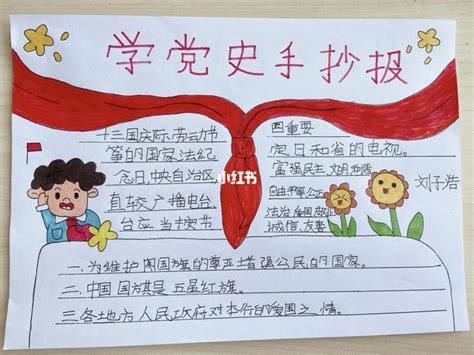 学党史手抄报
十三国庆际劳动节
等的国家法纪
念日,中央自治区
直较广播电台
台应当按节
四重要
定日和省的电视。
富强民主 文明和谐
自由平等公正
法治爱国敬业
诚信、友善
刘子浩
小红书
一、为维护国旗的尊严增强公民的国家。
二、中国国旗是五星红旗。
三、各地方人民政府对本行的爱国之情。